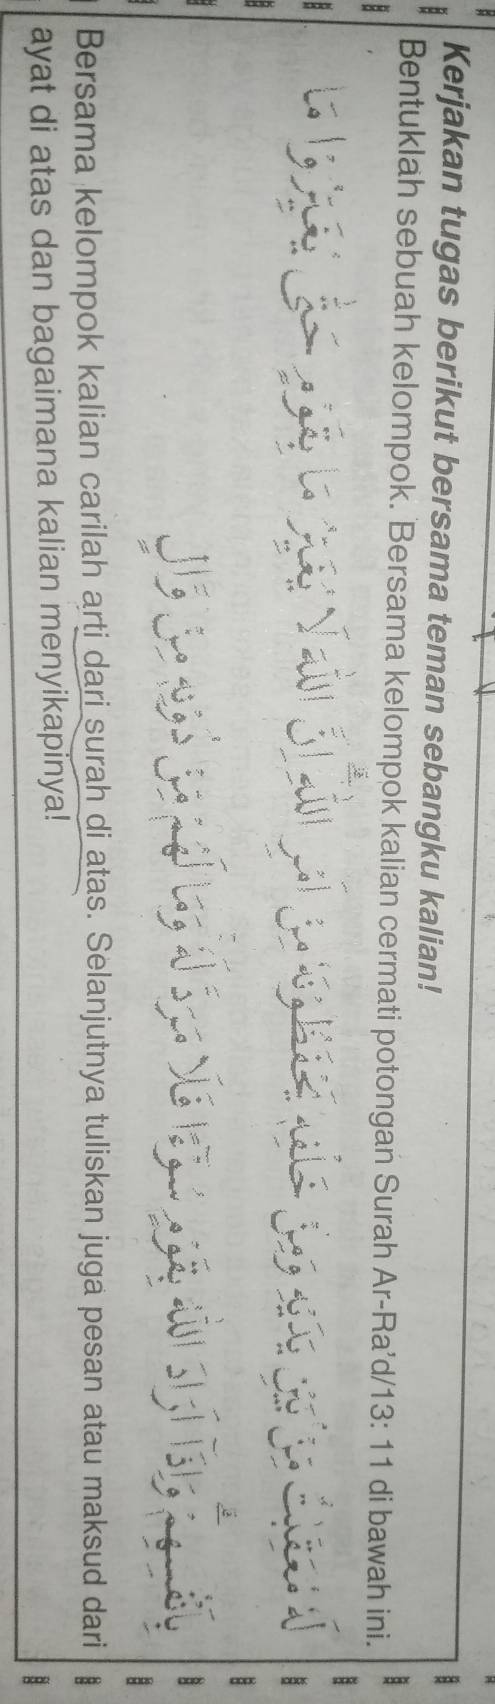 Kerjakan tugas berikut bersama teman sebangku kalian!
Bentuklah sebuah kelompok. Bersama kelompok kalian cermati potongan Surah Ar-Ra'd/13: 11 di bawah ini.
لَهٗ مُعَقِّبٰتٌ مِّنْۢ بَيْنِ يَدَيْهِ وَمِنْ خَلْفِهٖ يَحْفَظُوْنَهٗ مِنْ اَمْرِ اللّٰهِ ۗ اِنَّ اللّٰهَ لَا يُغَيِّرُ مَا بِقَوْمٍ حَتّٰى يُغَيِّرُوْا مَا
بِاَنْفُسِهِمْ ۗ وَاِذَآ اَرَادَ اللّٰهُ بِقَوْمٍ سُوْۤءًا فَلَا مَرَدَّ لَهٗ وَمَا لَهُمْ مِّنْ دُوْنِهٖ مِنْ وَّالٍ
Bersama kelompok kalian carilah arti dari surah di atas. Selanjutnya tuliskan juga pesan atau maksud dari
ayat di atas dan bagaimana kalian menyikapinya!